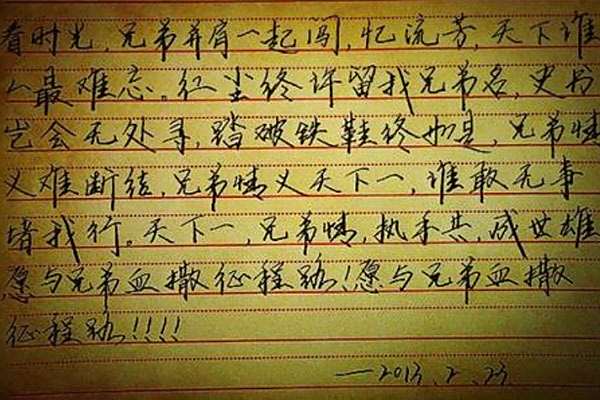 看时光,兄弟并肩一起闯,忆流芳,天下谁
人最难忘。红尘终许留我兄弟名,史书
岂会无处寻,踏破铁鞋终如是,兄弟情
义难断结,兄弟情义天下一,谁敢无事
堵我行。天下一,兄弟情,执手共,成世雄
愿与兄弟血撒征程路!愿与兄弟血撒
征程路!!!!
—2013.2.23